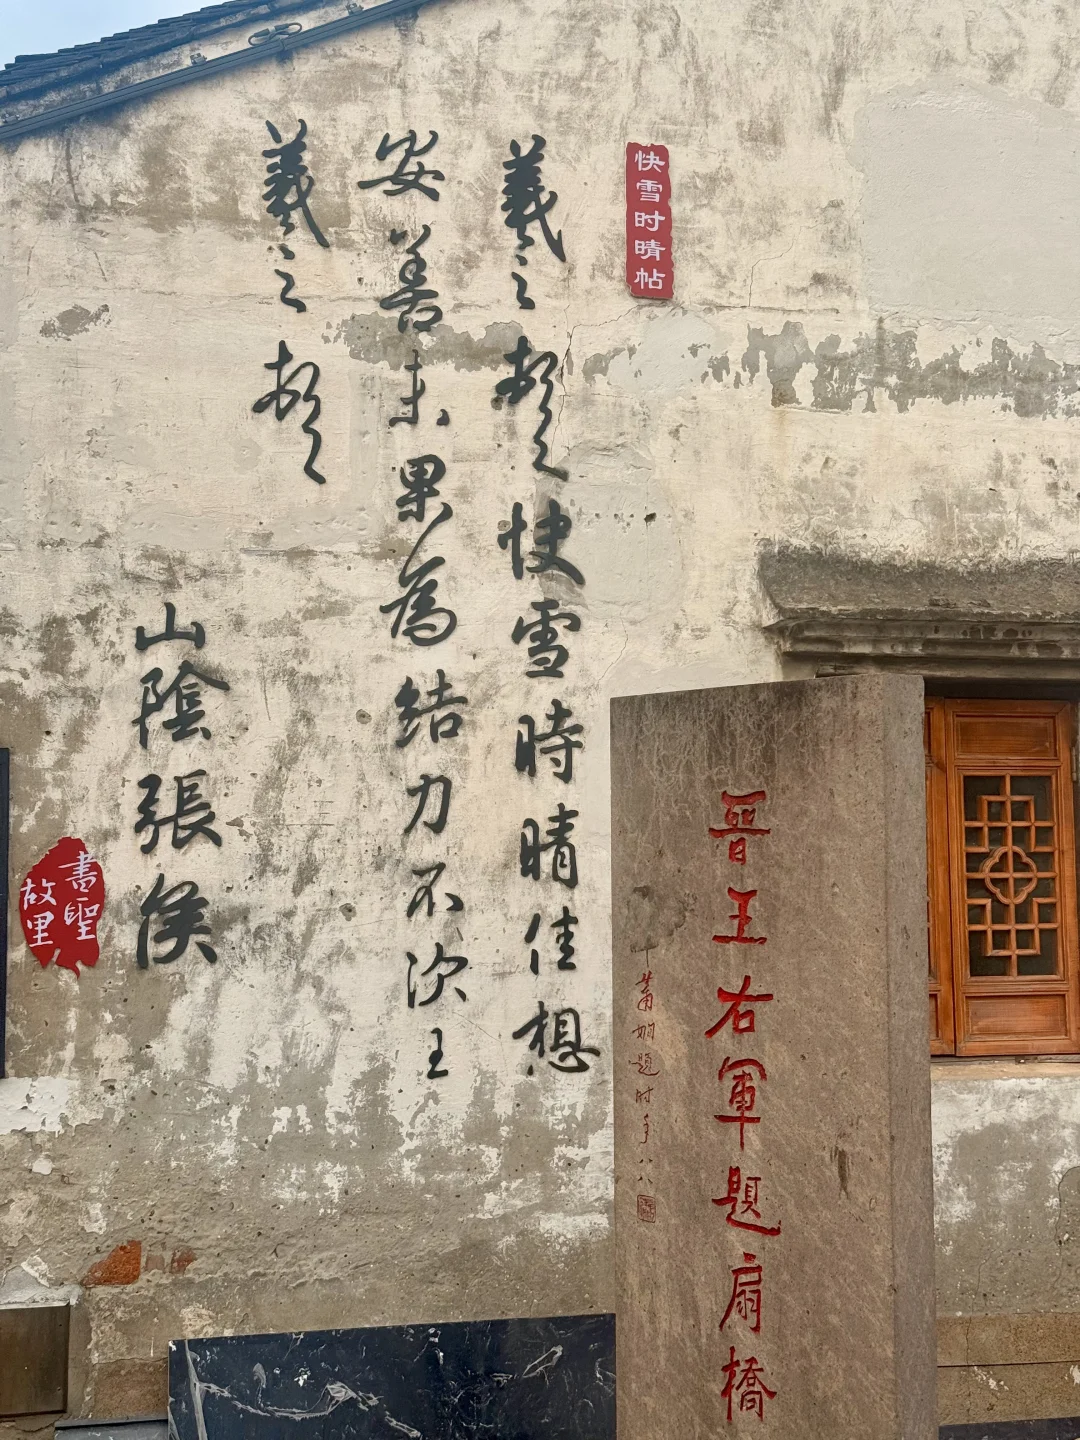 快雪时晴帖
羲之頓首快雪時晴佳想
安善未果為結力不次王
羲之頓首
山陰張侯
書聖
故里
晉王右軍題扇橋
蕭娴題时年八